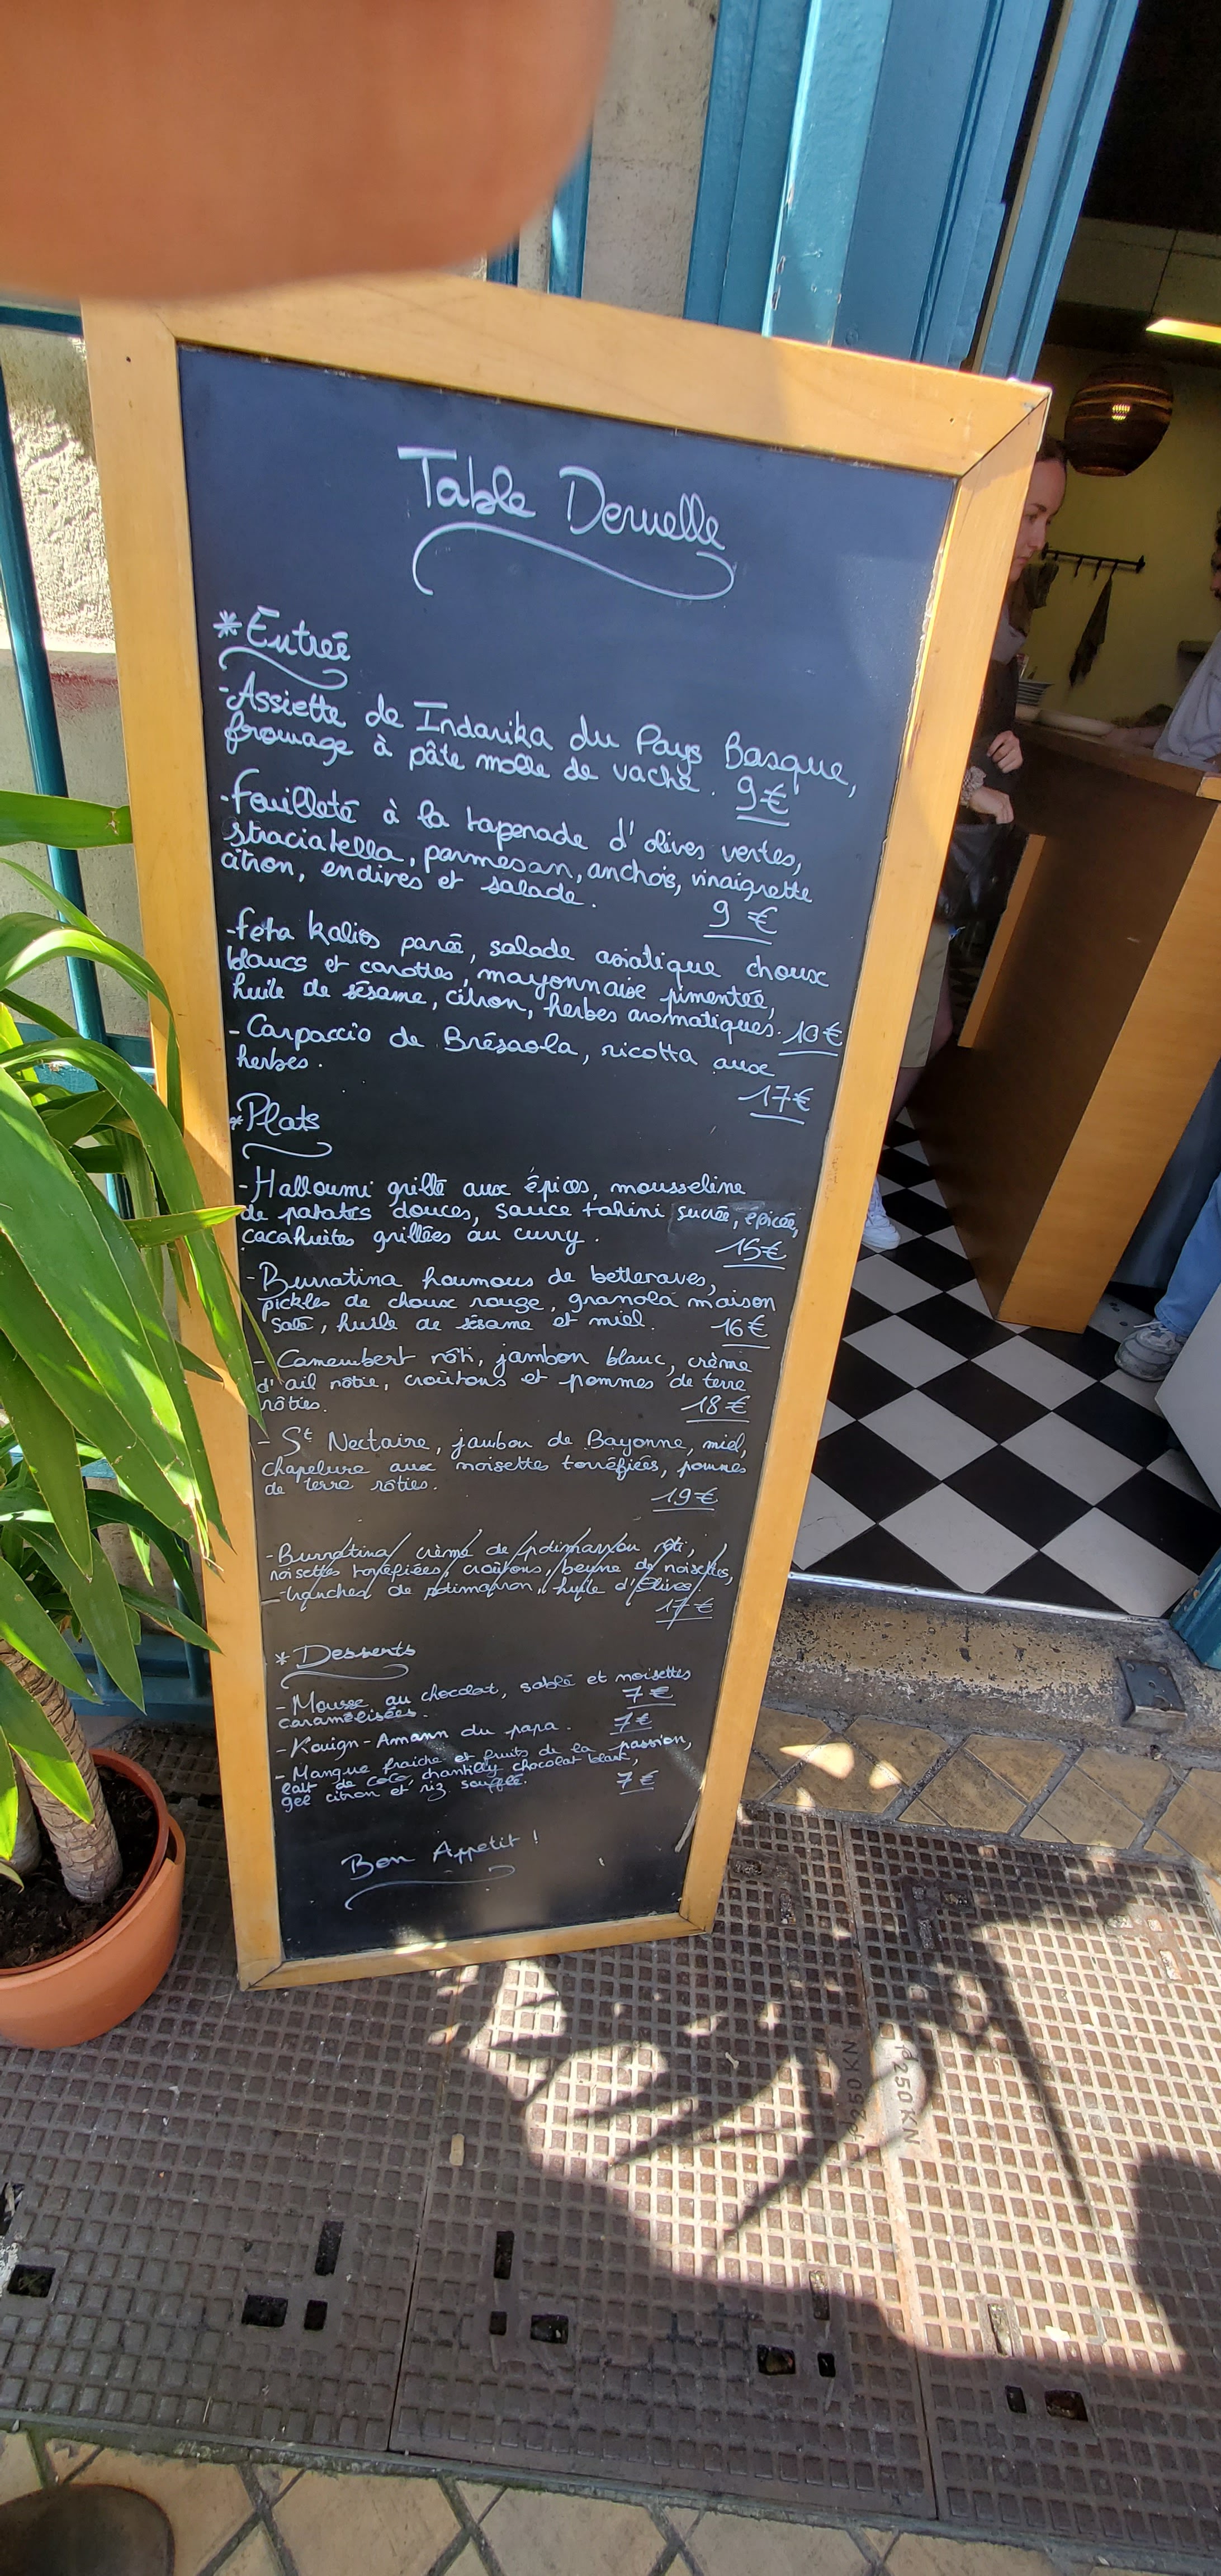 Table Deruelle
*Entrée
-Assiette de Indarika du Pays Basque,
fromage à pâte molle de vache. 9€
-Feuilleté à la tapenade d'olives vertes,
straciatella, parmesan, anchois, vinaigrette
citron, endives et salade. 9 €
-feta kalios panée, salade asiatique choux
blancs et carottes, mayonnaise pimentée,
huile de sésame, citron, herbes aromatiques. 10€
-Carpaccio de Brésaola, ricotta aux
herbes. 17€
*Plats
-Halloumi grillé aux épices, mousseline
de patates douces, sauce tahini sucrée, épicée,
cacahuètes grillées au curry. 15€
-Burratina houmous de betteraves,
pickles de choux rouge, granola maison
salé, huile de sésame et miel. 16€
-Camembert rôti, jambon blanc, crème
d'ail rôtie, croûtons et pommes de terre
rôties. 18€
-St Nectaire, jambon de Bayonne, miel,
chapelure aux noisettes torréfiées, pommes
de terre rôties. 19€
-Burratina, crème de potimarron rôti,
noisettes torréfiées, croûtons, beurre de noisettes,
-tranches de potimarron, huile d'olives. 17€
*Desserts
-Mousse au chocolat, sablé et noisettes
caramélisées. 7€
-Kouign-Amann du papa. 7€
-Mangue fraîche et fruits de la passion,
lait de coco, chantilly chocolat blanc,
gel citron et riz soufflé. 7€
Bon Appétit !
250 KN
250 KN